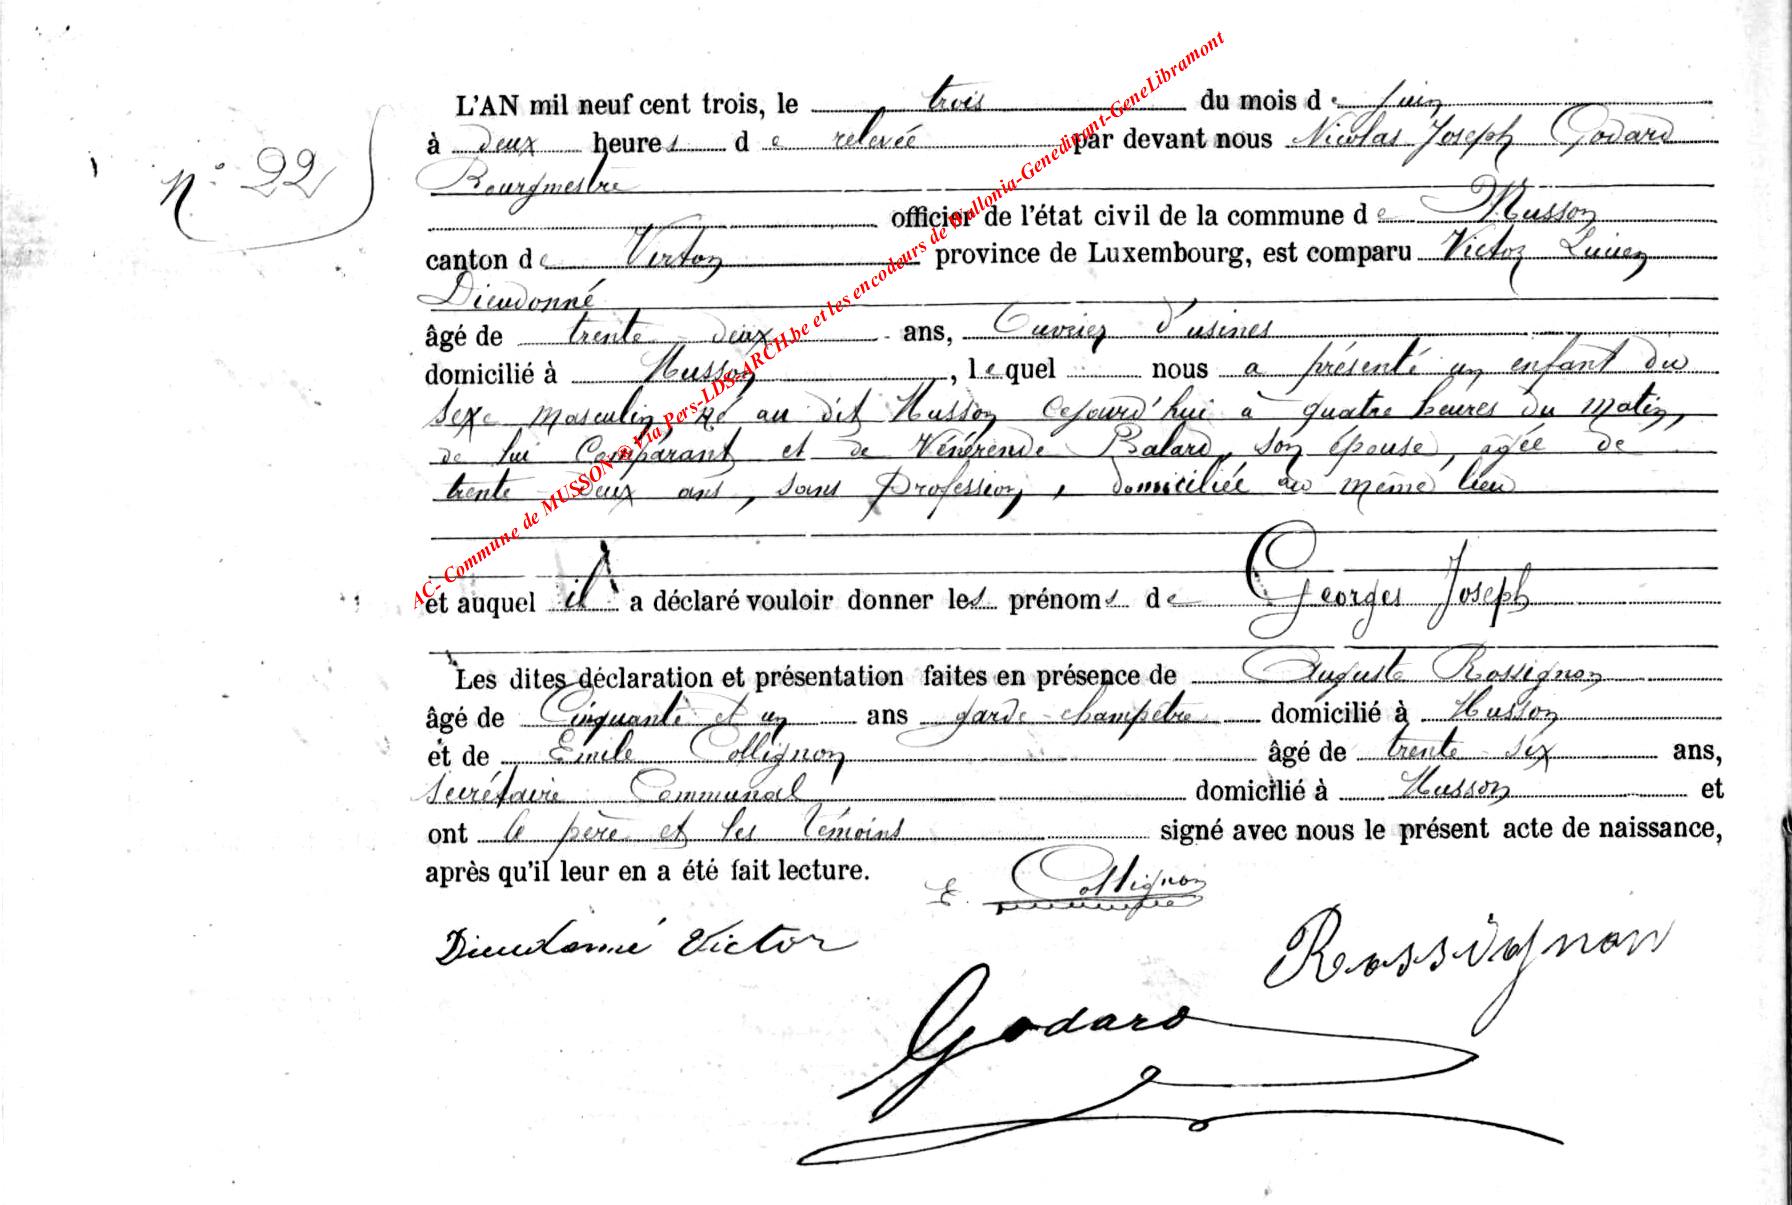 L'AN mil neuf cent trois, le trois du mois de juin
N° 22
à deux heures de relevée par devant nous Nicolas Joseph Godard
Bourgmestre
officier de l'état civil de la commune de Musson
canton de Virton province de Luxembourg, est comparu Victor Lucien
Dieudonné
âgé de trente deux ans, Ouvrier d'usines
domicilié à Musson, lequel nous a présenté un enfant du
sexe masculin, né au dit Musson cejourd'hui à quatre heures du matin,
de lui Comparant et de Vénérende Balard, son épouse, agée de
trente deux ans, sans profession, domiciliée au même lieu
et auquel il a déclaré vouloir donner les prénoms de Georges Joseph
Les dites déclaration et présentation faites en présence de Auguste Rossignon
âgé de Cinquante et un ans garde-champêtre domicilié à Musson
et de Emile Collignon âgé de trente six ans,
secrétaire Communal domicilié à Musson et
ont le père et les témoins signé avec nous le présent acte de naissance,
après qu'il leur en a été fait lecture.
E. Collignon
Dieudonné Victor
Rossignon
Godard
AC- Commune de MUSSON ® Via Pers-LDS-ARCH.be et les encodeurs de Wallonia-Genedinant-GeneLibramont